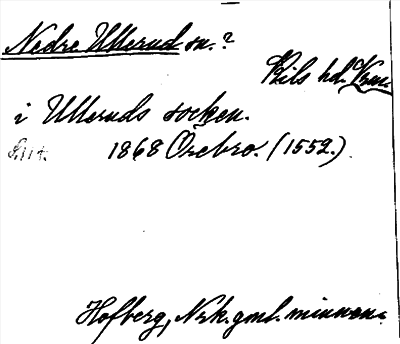 Nedre Ullerud sn.?
Kils hd. Vrm.
i Ulleruds socken.
Litt. 1868 Örebro. (1552.)
Hofberg, Nrk. gml. minnen.